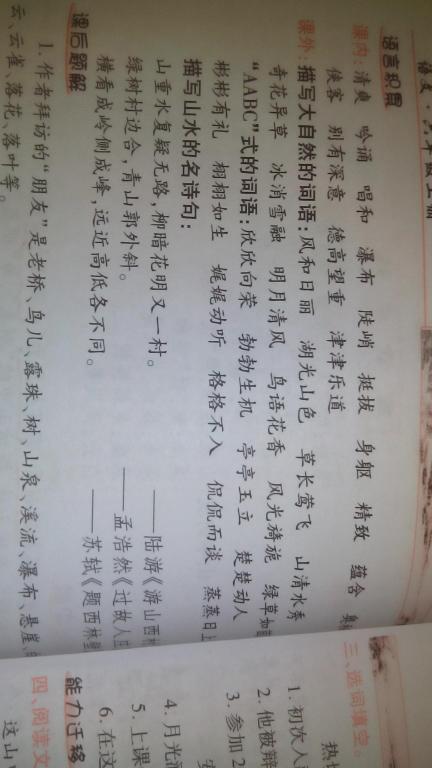 语文·六年级上册
语言积累
课内：清爽 吟诵 唱和 瀑布 陡峭 挺拔 身躯 精致 蕴含
侠客 别有深意 德高望重 津津乐道
课外：描写大自然的词语：风和日丽 湖光山色 草长莺飞 山清水秀
奇花异草 冰消雪融 明月清风 鸟语花香 风光旖旎 绿草如茵
“AABC”式的词语：欣欣向荣 勃勃生机 亭亭玉立 楚楚动人
彬彬有礼 栩栩如生 娓娓动听 格格不入 侃侃而谈 蒸蒸日上
描写山水的名诗句：
山重水复疑无路，柳暗花明又一村。 ——陆游《游山西村
绿树村边合，青山郭外斜。 ——孟浩然《过故人庄
横看成岭侧成峰，远近高低各不同。 ——苏轼《题西林壁
课后题解
1. 作者拜访的“朋友”是老桥、鸟儿、露珠、树、山泉、溪流、瀑布、悬崖、
云、云雀、落花、落叶等。
三、选词填空。
热
1. 初次入
2. 他被辩
3. 参加2
4. 月光洒
5. 上课
6. 在这
能力迁移
四、阅读文
这山